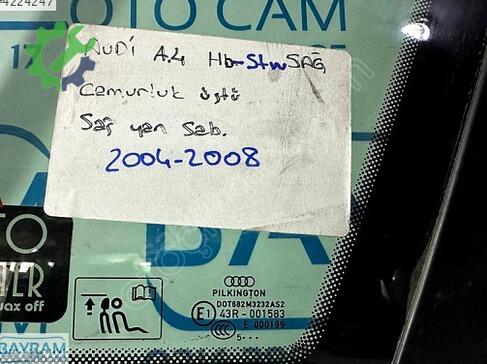 4224247
OTO CAM
17
AUDİ A4 Hb-Stw SAĞ
Çamurluk üstü
Sağ yan Sab.
2004-2008
BA
wax off
PILKINGTON
DOT682M3232AS2
E1 43R - 001583
E 000199
5···
BAYRAM